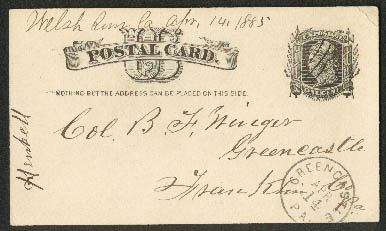 Welsh Run Pa Apr. 14. 1885
POSTAL CARD.
NOTHING BUT THE ADDRESS CAN BE PLACED ON THIS SIDE.
Henkell
Col. B F. Winger
Greencastle
Franklin Co Pa
GREENCASTLE
APR
14
PA.